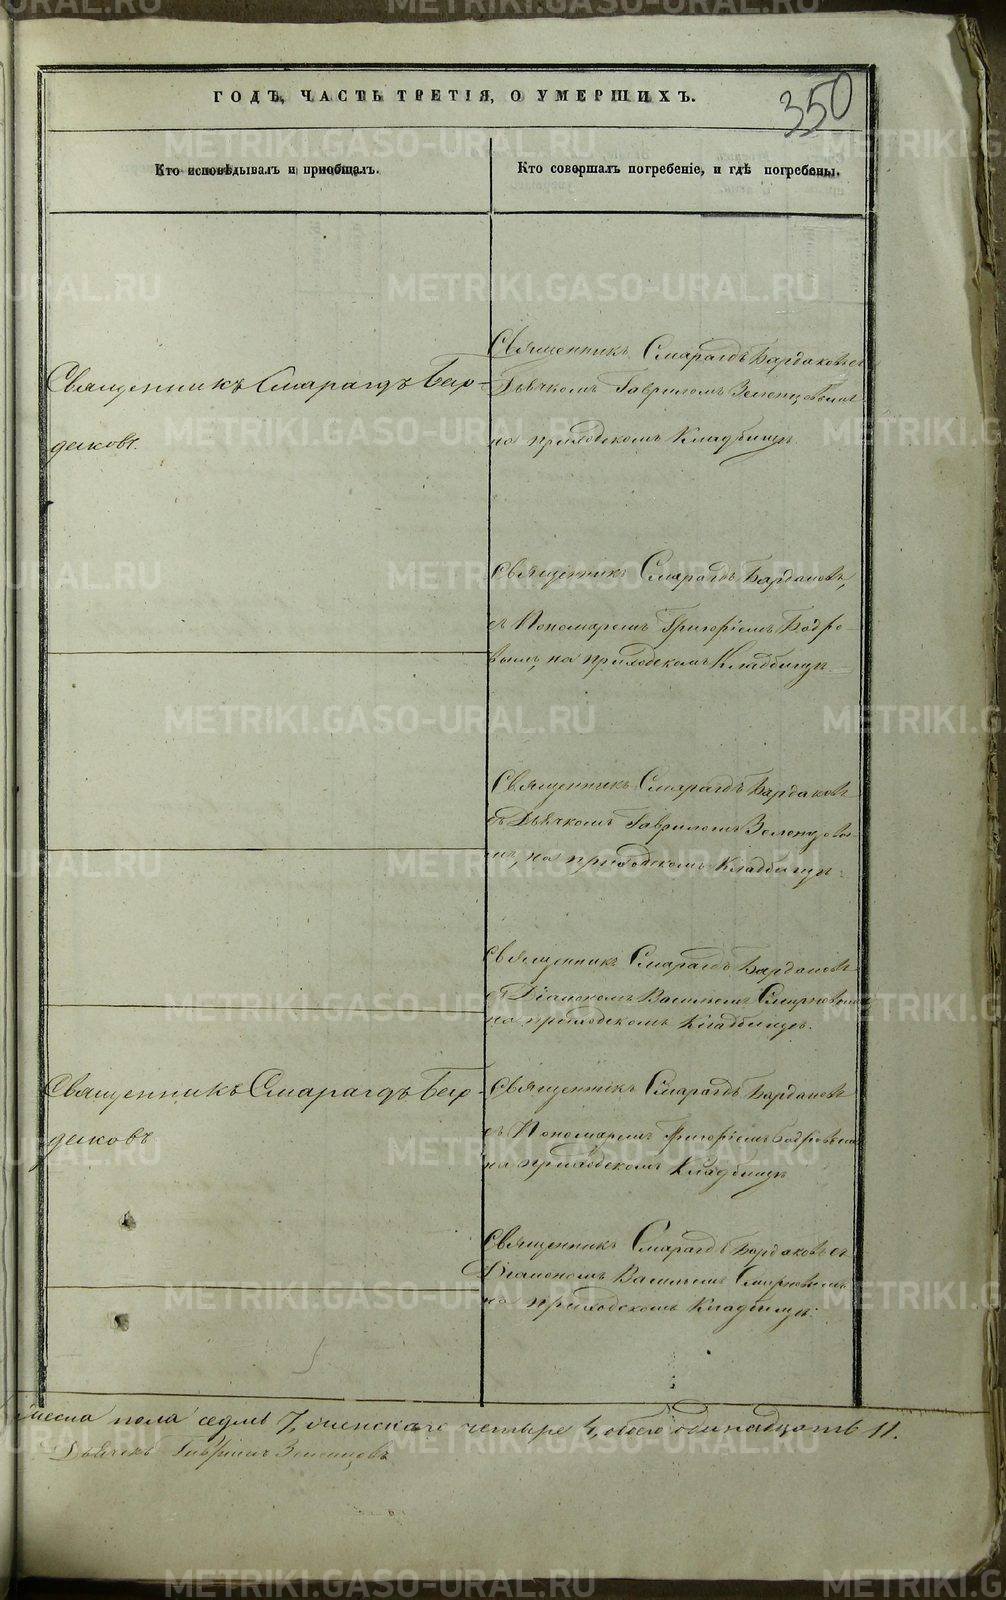 350
ГОДЪ, ЧАСТЬ ТРЕТІЯ, О УМЕРШИХЪ.
Кто исповѣдывалъ и пріобщалъ.
Кто совершалъ погребеніе, и гдѣ погребены.
Священникъ Смарагдъ Бар-
даковъ.
Священникъ Смарагдъ Бардаковъ съ
Дьячкомъ Гавриломъ Зеленцовымъ
на приходскомъ Кладбищѣ
Священникъ Смарагдъ Бардаковъ,
съ Пономаремъ Григоріемъ Бобро-
вымъ, на приходскомъ Кладбищѣ.
Священникъ Смарагдъ Бардаковъ
съ Дьячкомъ Гавриломъ Зеленцовы-
мъ, на приходскомъ Кладбищѣ.
Священникъ Смарагдъ Бардаковъ
съ Діакономъ Васильемъ Смирновымъ
на приходскомъ Кладбищѣ.
Священникъ Смарагдъ Бар-
даковъ
Священникъ Смарагдъ Бардаковъ
съ Пономаремъ Григоріемъ Бобровымъ
на приходскомъ Кладбищѣ
Священникъ Смарагдъ Бардаковъ съ
Діакономъ Васильемъ Смирновымъ
на приходскомъ Кладбищѣ.
пола седмь 7, женскаго четыре 4, обоего одинадцать 11.
Дьячекъ Гавріилъ Зеленцовъ
METRIKI.GASO-URAL.RU